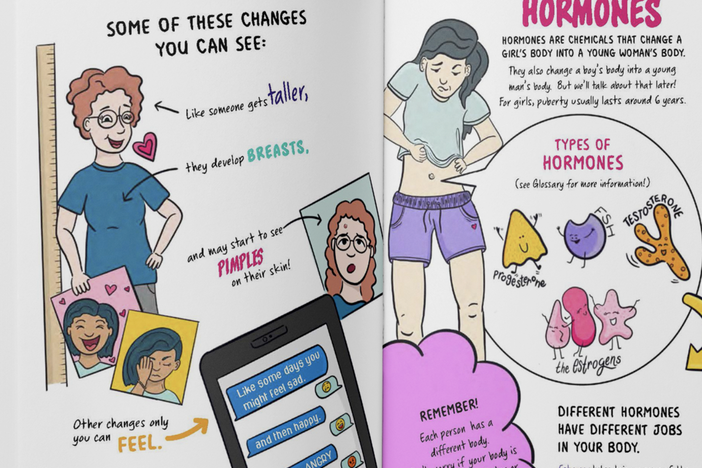 SOME OF THESE CHANGES
YOU CAN SEE:
Like someone gets taller,
they develop BREASTS,
and may start to see
PIMPLES
on their skin!
Like some days you
might feel sad.
and then happy.
ANGRY
Other changes only
you can FEEL.
HORMONES
HORMONES ARE CHEMICALS THAT CHANGE A
GIRL'S BODY INTO A YOUNG WOMAN'S BODY.
They also change a boy's body into a young
man's body. But we'll talk about that later!
For girls, puberty usually lasts around 6 years.
TYPES OF
HORMONES
(see Glossary for more information!)
progesterone
FSH
TESTOSTERONE
the estrogens
REMEMBER!
Each person has a
different body.
if your body is
DIFFERENT HORMONES
HAVE DIFFERENT JOBS
IN YOUR BODY.